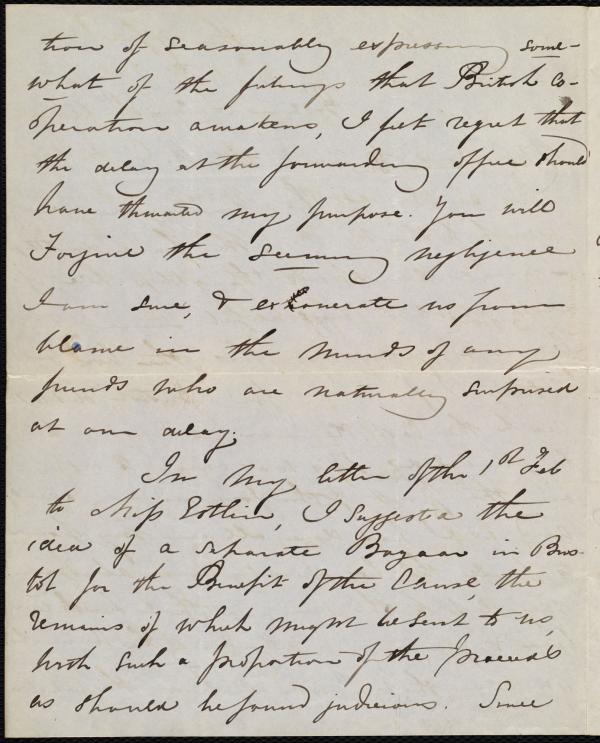 tion of seasonably expressing some-
what of the feelings that British co-
operation awakens, I felt regret that
the delay at the forwarding office should
have thwarted my purpose. You will
Forgive the seeming negligence
I am sure, & exhonerate us from
blame in the minds of any
friends who are naturally surprised
at our delay.
In my letter of the 1st Feb
to Miss Estlin, I suggested the
idea of a separate Bazaar in Bris-
tol for the Benefit of the Cause, the
remains of which might be sent to us,
with such a proportion of the proceeds
as should be found judicious. Since